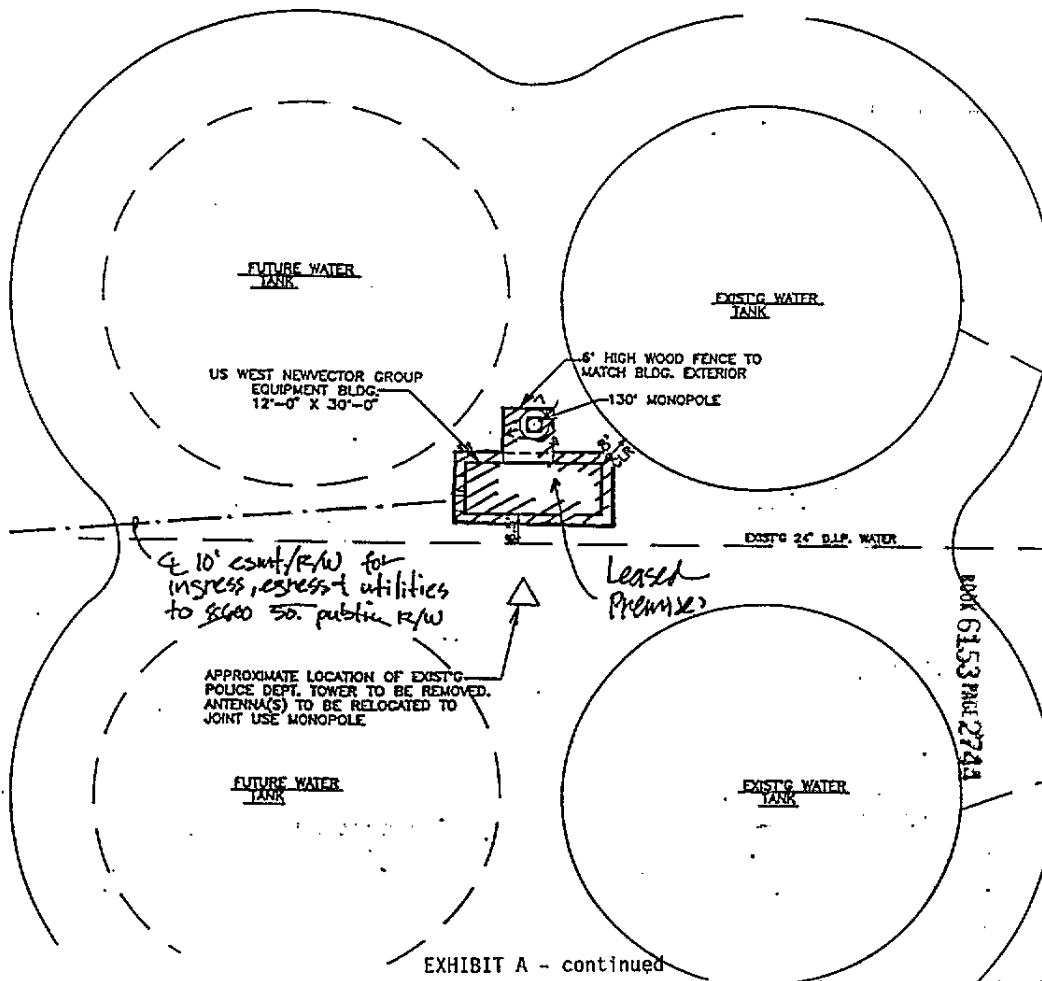 FUTURE WATER
TANK
EXIST'G WATER
TANK
US WEST NEWVECTOR GROUP
EQUIPMENT BLDG.
12'-0" X 30'-0"
6' HIGH WOOD FENCE TO
MATCH BLDG. EXTERIOR
130' MONOPOLE
8'
CLR.
EXIST'G 24" D.I.P. WATER
℄ 10' esmt/R/W for
ingress, egress + utilities
to 8600 So. public R/W
Leased
Premises
APPROXIMATE LOCATION OF EXIST'G
POLICE DEPT. TOWER TO BE REMOVED.
ANTENNA(S) TO BE RELOCATED TO
JOINT USE MONOPOLE
BOOK 6153 PAGE 2744
FUTURE WATER
TANK
EXIST'G WATER
TANK
EXHIBIT A - continued